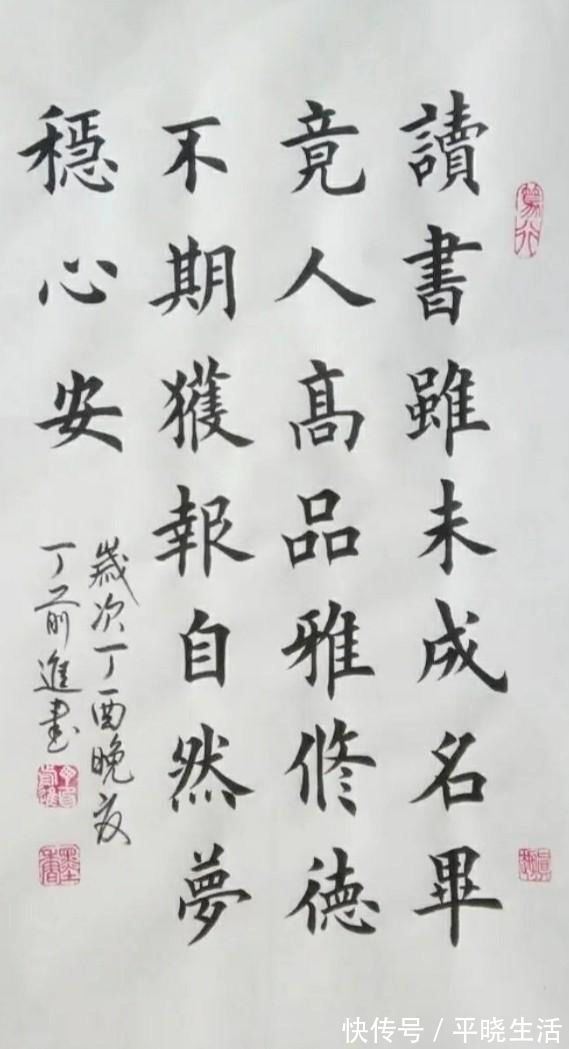 讀書雖未成名畢
竟人高品雅修德
不期獲報自然夢
穩心安
歲次丁酉晚夏
丁前進書
快传号/平晓生活